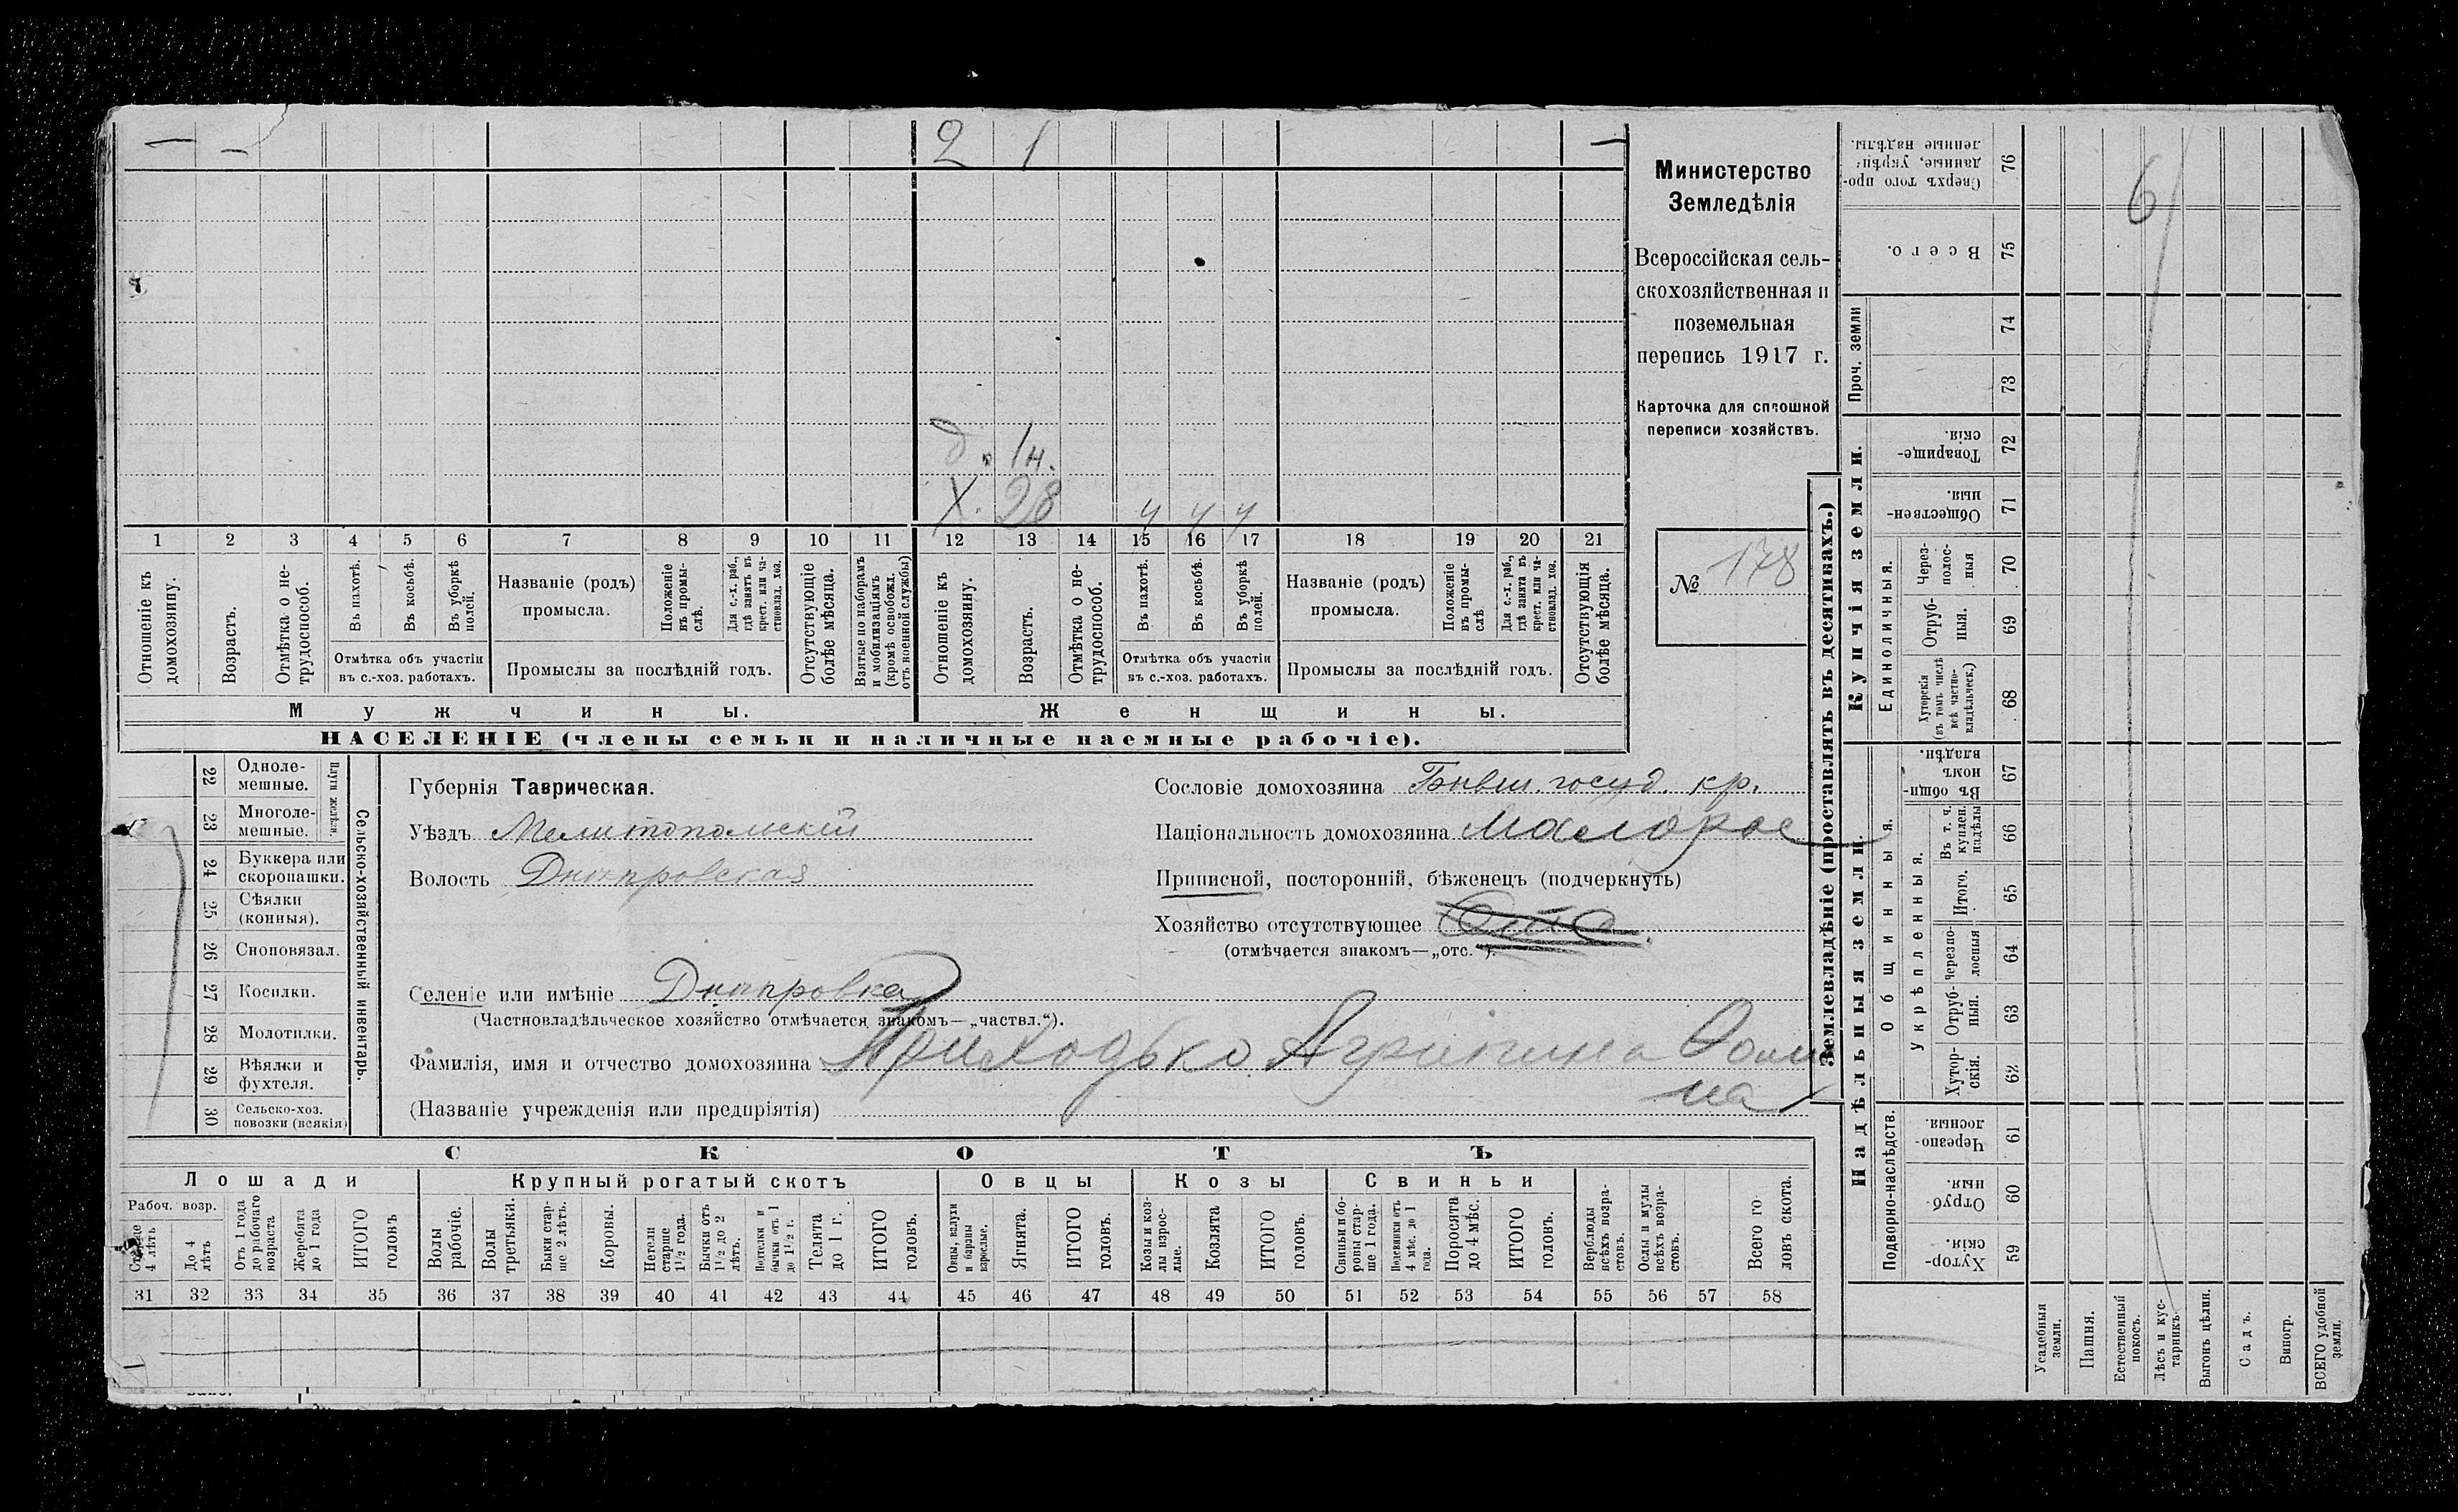 — — 2 1 —
д. 1н.
Х. 28 у у у
1 2 3 4 5 6 7 8 9 10 11 12 13 14 15 16 17 18 19 20 21
Отношеніе къ домохозяину.
Возрастъ.
Отмѣтка о не-трудоспособ.
Въ пахотѣ.
Въ косьбѣ.
Въ уборкѣ полей.
Отмѣтка объ участіи
въ с.-хоз. работахъ.
Названіе (родъ)
промысла.
Положеніе въ промы-слѣ.
Для с.-х. раб., гдѣ занятъ въ крест. или ча-стновлад. хоз.
Промыслы за послѣдній годъ.
Отсутствующіе болѣе мѣсяца.
Взятые по наборамъ и мобилизаціямъ (кромѣ освобожд. отъ военной службы)
Отношеніе къ домохозяину.
Возрастъ.
Отмѣтка о не-трудоспособ.
Въ пахотѣ.
Въ косьбѣ.
Въ уборкѣ полей.
Отмѣтка объ участіи
въ с.-хоз. работахъ.
Названіе (родъ)
промысла.
Положеніе въ промы-слѣ
Для с.-х. раб., гдѣ занята въ крест. или ча-стновлад. хоз.
Промыслы за послѣдній годъ.
Отсутствующія болѣе мѣсяца.
Мужчины.
Женщины.
НАСЕЛЕНІЕ (члены семьи и наличные наемные рабочіе).
Министерство
Земледѣлія
Всероссійская сель-
скохозяйственная и
поземельная
перепись 1917 г.
Карточка для сплошной
переписи хозяйствъ.
№ 178
22 Одноле-мешные.
23 Многоле-мешные.
Плуги желѣзн.
24 Буккера или скоропашки.
25 Сѣялки (конныя).
26 Сноповязал.
27 Косилки.
28 Молотилки.
29 Вѣялки и фухтеля.
30 Сельско-хоз. повозки (всякія)
Сельско-хозяйственный инвентарь.
Губернія Таврическая.
Уѣздъ Мелитопольскій
Волость Днѣпровская
Селеніе или имѣніе Днѣпровка
(Частновладѣльческое хозяйство отмѣчается знакомъ—„частвл.“).
Фамилія, имя и отчество домохозяина Приходько Агрипина Фоми
на
(Названіе учрежденія или предпріятія)
Сословіе домохозяина Бывш. госуд. кр.
Національность домохозяина Малорос
Приписной, посторонній, бѣженецъ (подчеркнуть)
Хозяйство отсутствующее
(отмѣчается знакомъ—„отс.“).
СКОТЪ
Лошади
Крупный рогатый скотъ
Овцы
Козы
Свиньи
Рабоч. возр.
Старше 4 лѣтъ
До 4 лѣтъ
Отъ 1 года до рабочаго возраста
Жеребята до 1 года
ИТОГО головъ
Волы рабочіе.
Волы третьяки.
Быки стар-ше 2 лѣтъ.
Коровы.
Нетели старше 1 1/2 года.
Бычки отъ 1 1/2 до 2 лѣтъ.
Нетелки и бычки отъ 1 до 1 1/2 г.
Телята до 1 г.
ИТОГО головъ.
Овцы, валухи и бараны взрослые.
Ягнята.
ИТОГО головъ.
Козы и коз-лы взрос-лые.
Козлята
ИТОГО головъ.
Свиньи и бо-ровы стар-ше 1 года.
Подсвинки отъ 4 мѣс. до 1 года.
Поросята до 4 мѣс.
ИТОГО головъ.
Верблюды всѣхъ возра-стовъ.
Ослы и мулы всѣхъ возра-стовъ.
Всего го ловъ скота.
31 32 33 34 35 36 37 38 39 40 41 42 43 44 45 46 47 48 49 50 51 52 53 54 55 56 57 58
Землевладѣніе (проставлять въ десятинахъ.)
Сверхъ того про-данные, укрѣп-ленные надѣлы. 76
Всего. 75
Проч. земли 74
73
Купчія земли.
Товарище-скія. 72
Обществен-ныя. 71
Единоличныя.
Через-полос-ныя 70
Отруб-ныя. 69
Хуторскія (въ томъ числѣ всѣ частно-владѣльческ.) 68
Надѣльныя земли.
Общинныя.
Въ общи-номъ владѣн. 67
Укрѣпленныя.
Въ т. ч. куплен. надѣлы 66
Итого. 65
Черезпо-лосныя 64
Отруб-ныя. 63
Хутор-скія. 62
Подворно-наслѣдств.
Черезпо-лосныя. 61
Отруб-ныя. 60
Хутор-скія. 59
6
Усадебныя земли.
Пашня.
Естественный покосъ.
Лѣсъ и кус-тарникъ.
Выгонъ цѣлин.
Садъ.
Виногр.
ВСЕГО удобной земли.